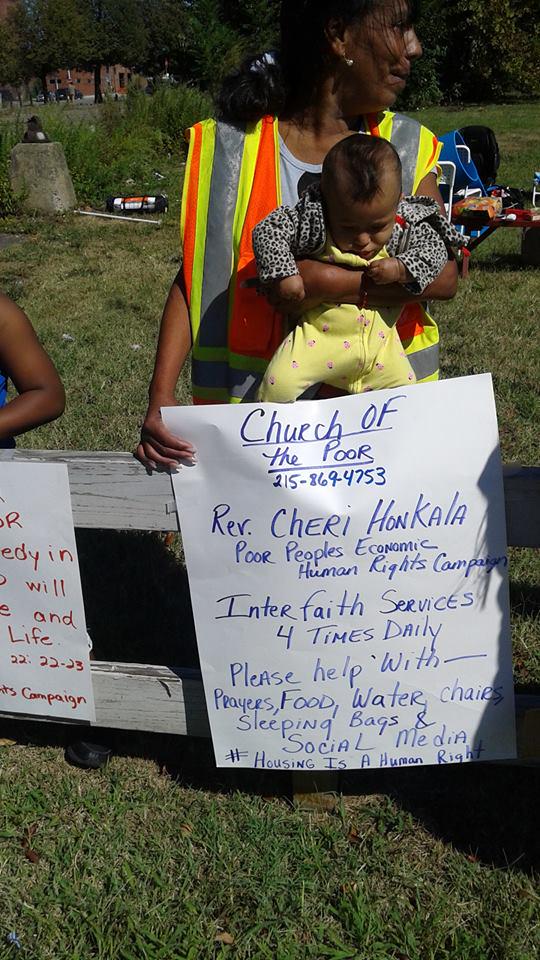 Church OF
the POOR
215-869-4753
Rev. CHERI HONKALA
POOR PEOPLES ECONOMIC
HUMAN RIGHTS CAMPAIGN
INTERFAITH SERVICES
4 TIMES DAILY
PLEASE help WITH—
PRAYERS, FOOD, WATER, chairs,
SLEEPING BAGS &
SOCIAL MEDIA
# HOUSING IS A HUMAN RIGHT
edy in
will
e and
Life.
22: 22-23
Campaign